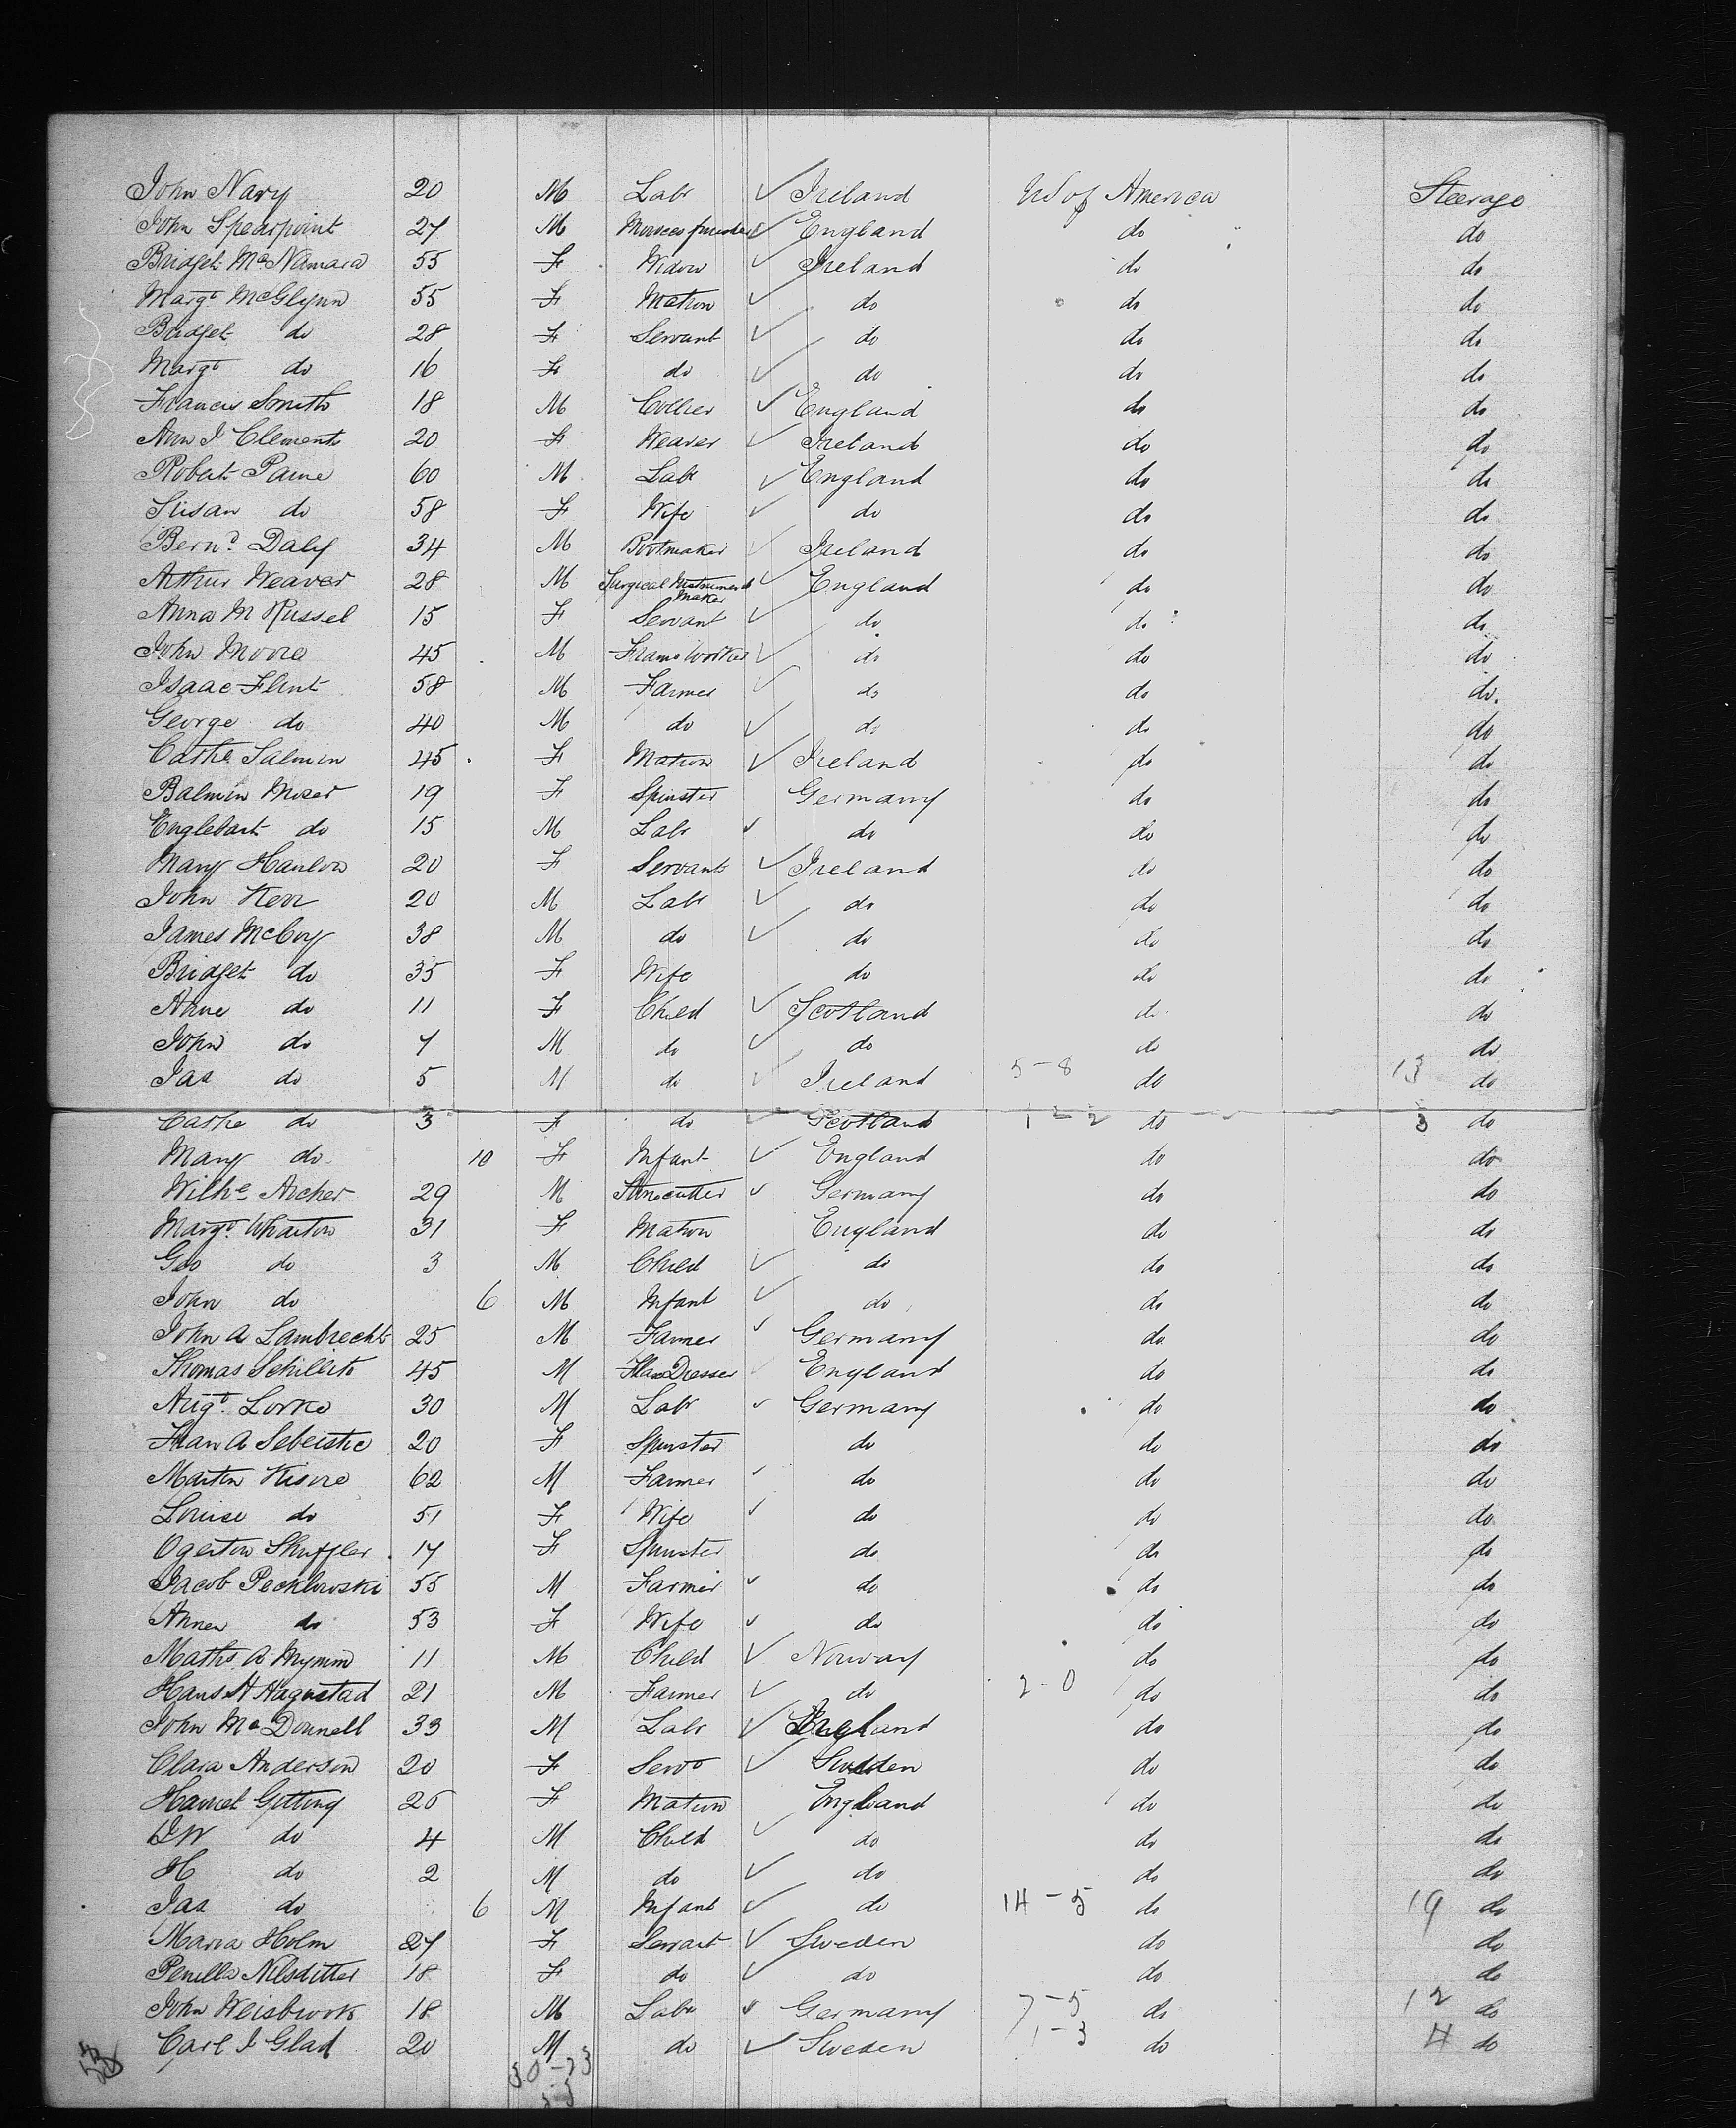 John Nary 20 M Labr Ireland U S of America Steerage
John Spearpoint 27 M England do do
Bridget McNamara 55 F Widow Ireland do do
Margt McGlynn 55 F Matron do do do
Bridget do 28 F Servant do do do
Margt do 16 F do do do do
Francis Smith 18 M Collier England do do
Ann J Clements 20 F Weaver Ireland do do
Robert Paine 60 M Labr England do do
Susan do 58 F Wife do do do
Bernd Daly 34 M Bootmaker Ireland do do
Arthur Weaver 28 M Surgical Instrument England do do
Maker
Anna M Russel 15 F Servant do do do
John Moore 45 M Frame Worker do do do
Isaac Flint 58 M Farmer do do do
George do 40 M do do do do
Cathe Salmon 45 F Matron Ireland do do
Balmin Moser 19 F Spinster Germany do do
Englebart do 15 M Labr do do do
Mary Hanlon 20 F Servant Ireland do do
John Kerr 20 M Labr do do do
James McCoy 38 M do do do do
Bridget do 35 F Wife do do do
Anne do 11 F Child Scotland do do
John do 7 M do do do do
Jas do 5 M do Ireland 5-8 do 13 do
Cathe do 3 F do Scotland 1-2 do 3 do
Mary do 10 F Infant England do do
Wilhe Archer 29 M Stonecutter Germany do do
Margt Wharton 31 F Matron England do do
Geo do 3 M Child do do do
John do 6 M Infant do do do
John A Lambrecht 25 M Farmer Germany do do
Thomas Schillito 45 M Flax Dresser England do do
Augt Lorke 30 M Labr Germany do do
Fran A Sebeistie 20 F Spinster do do do
Martin Kisore 62 M Farmer do do do
Louise do 51 F Wife do do do
Ogerton Shuffler 17 F Spinster do do do
Jacob Pecklowski 55 M Farmer do do do
Annen do 53 F Wife do do do
Maths A Mymin 11 M Child Norway do do
Hans H Hagustad 21 M Farmer do 2-0 do do
John McDonnell 33 M Labr do do
Clara Anderson 20 F Servt Sweden do do
Harriet Gitting 26 F Matron England do do
J W do 4 M Child do do do
H do 2 M do do do do
Jas do 6 M Infant do 14-5 do 19 do
Maria Holm 27 F Servant Sweden do do
Penilla Nilsditter 18 F do do do do
John Weisbrook 18 M Labr Germany 7-5 do 12 do
Carl J Glad 20 M do Sweden 1-3 do 4 do
53 30-23
53